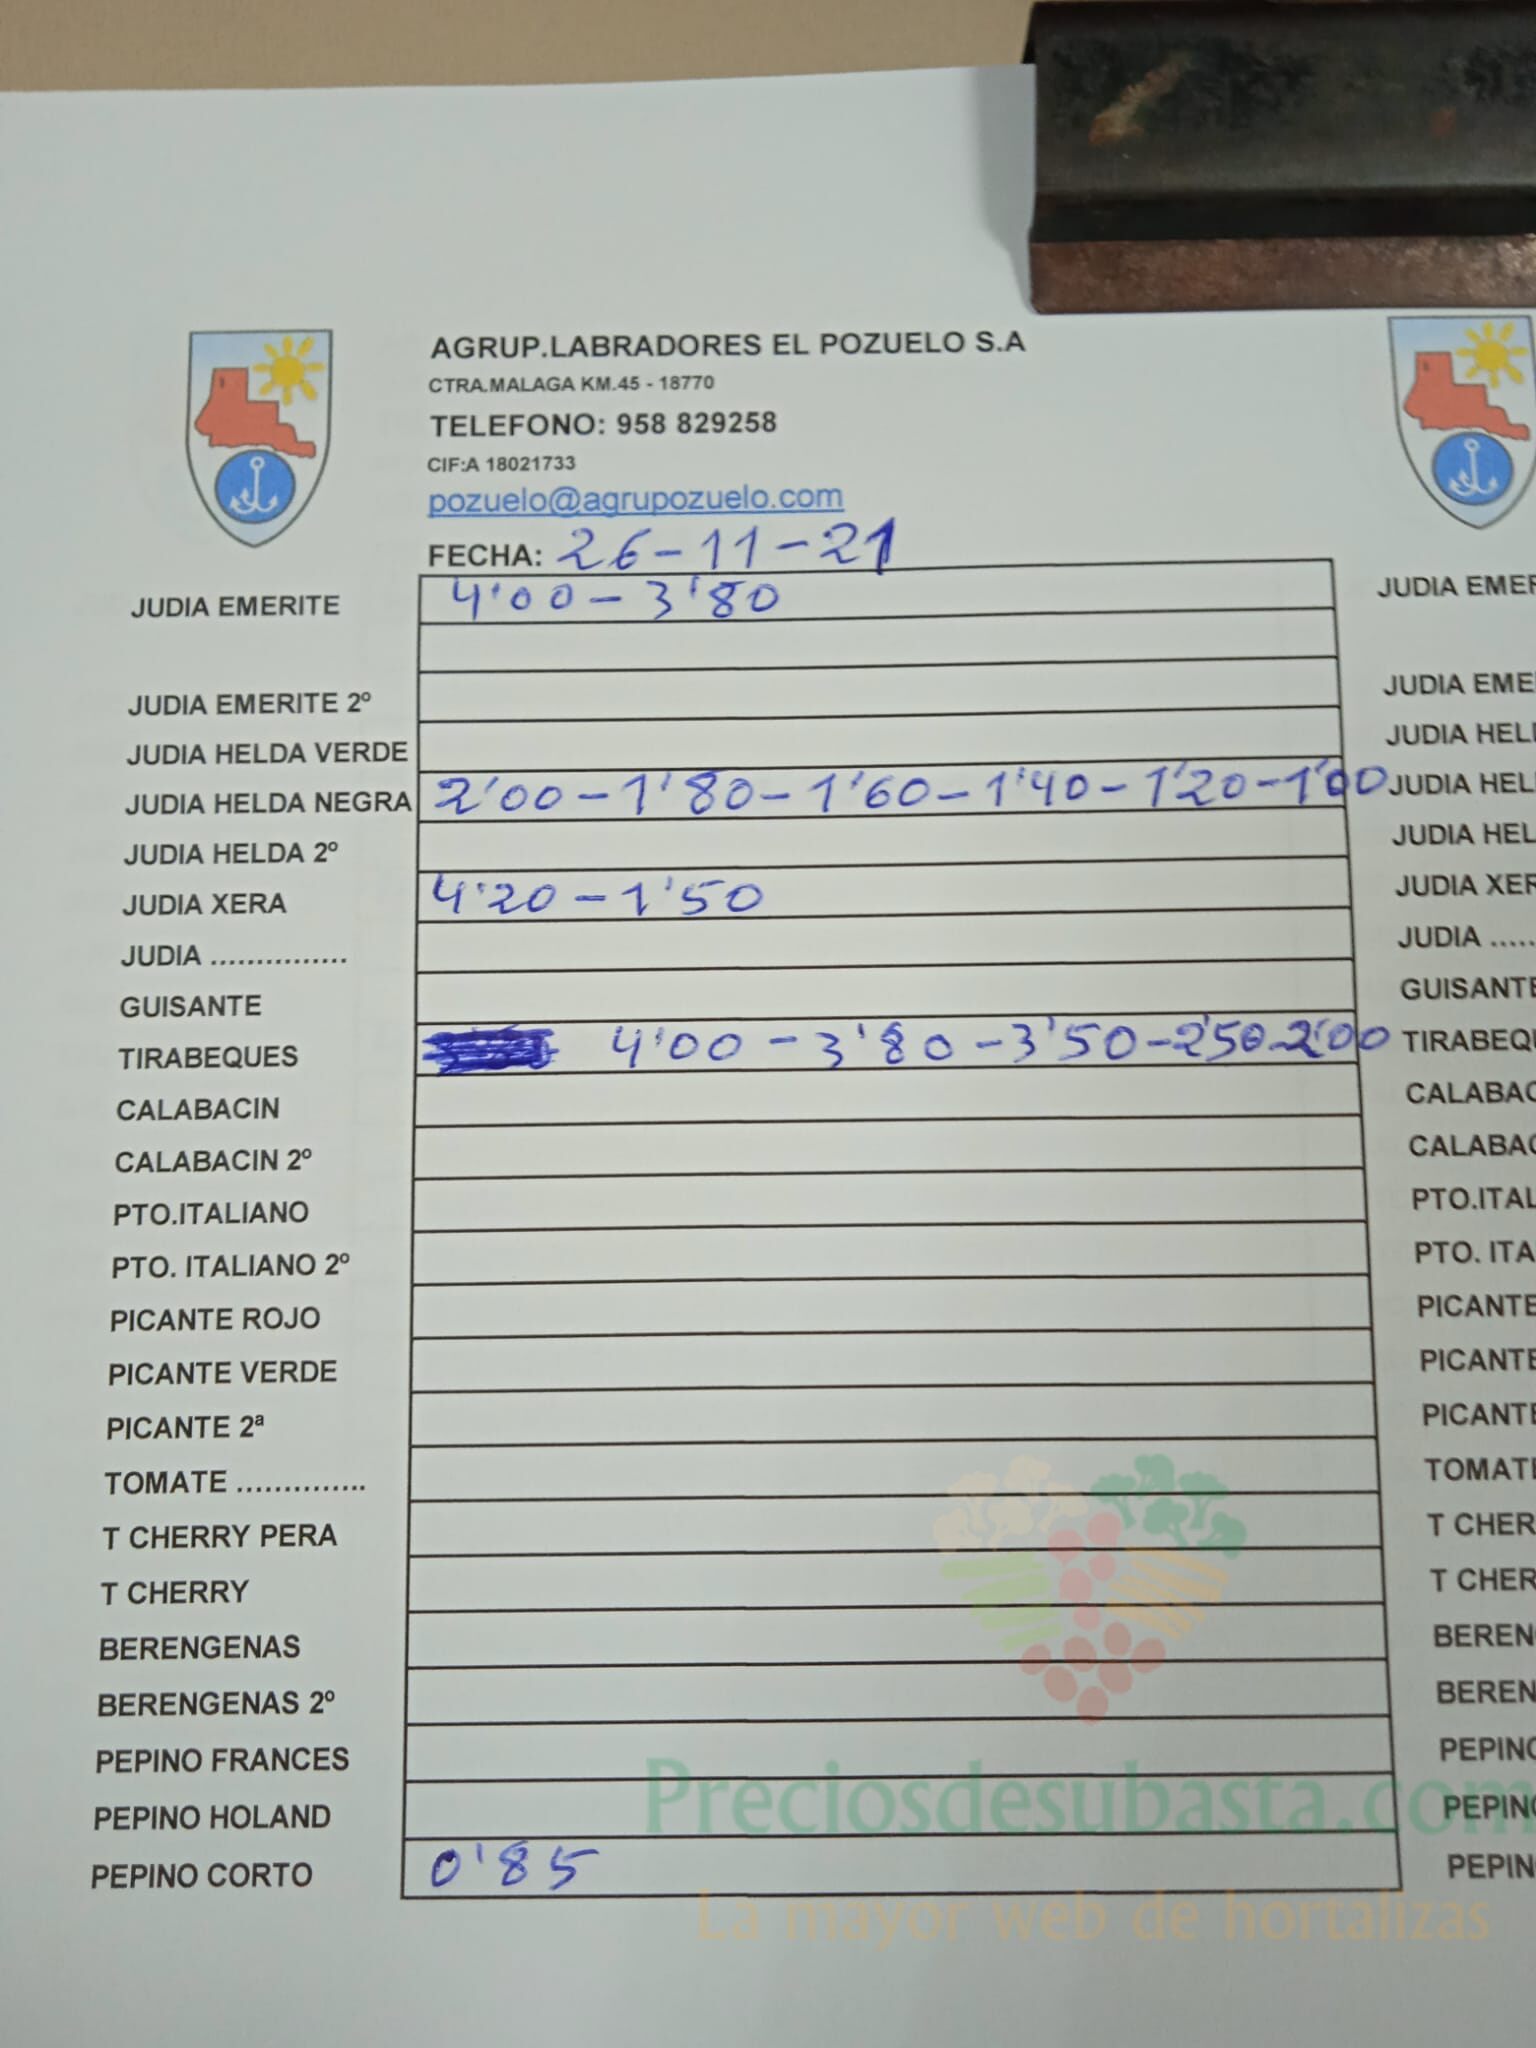 AGRUP.LABRADORES EL POZUELO S.A
CTRA.MALAGA KM.45 - 18770
TELEFONO: 958 829258
CIF:A 18021733
pozuelo@agrupozuelo.com
FECHA: 26-11-21
JUDIA EMERITE 4'00 - 3'80
JUDIA EMERITE 2º
JUDIA HELDA VERDE
JUDIA HELDA NEGRA 2'00 - 1'80 - 1'60 - 1'40 - 1'20 - 1'00
JUDIA HELDA 2º
JUDIA XERA 4'20 - 1'50
JUDIA ...............
GUISANTE
TIRABEQUES 4'00 - 3'80 - 3'50 - 2'50 - 2'00
CALABACIN
CALABACIN 2º
PTO.ITALIANO
PTO. ITALIANO 2º
PICANTE ROJO
PICANTE VERDE
PICANTE 2ª
TOMATE ..............
T CHERRY PERA
T CHERRY
BERENGENAS
BERENGENAS 2º
PEPINO FRANCES
PEPINO HOLAND
PEPINO CORTO 0'85
JUDIA EMER
JUDIA EME
JUDIA HEL
JUDIA HEL
JUDIA HEL
JUDIA XER
JUDIA .....
GUISANTE
TIRABEQU
CALABAC
CALABAC
PTO.ITAL
PTO. ITA
PICANTE
PICANTE
PICANTE
TOMATE
T CHER
T CHER
BEREN
BEREN
PEPINO
PEPINO
PEPIN
Preciosdesubasta.com
La mayor web de hortalizas